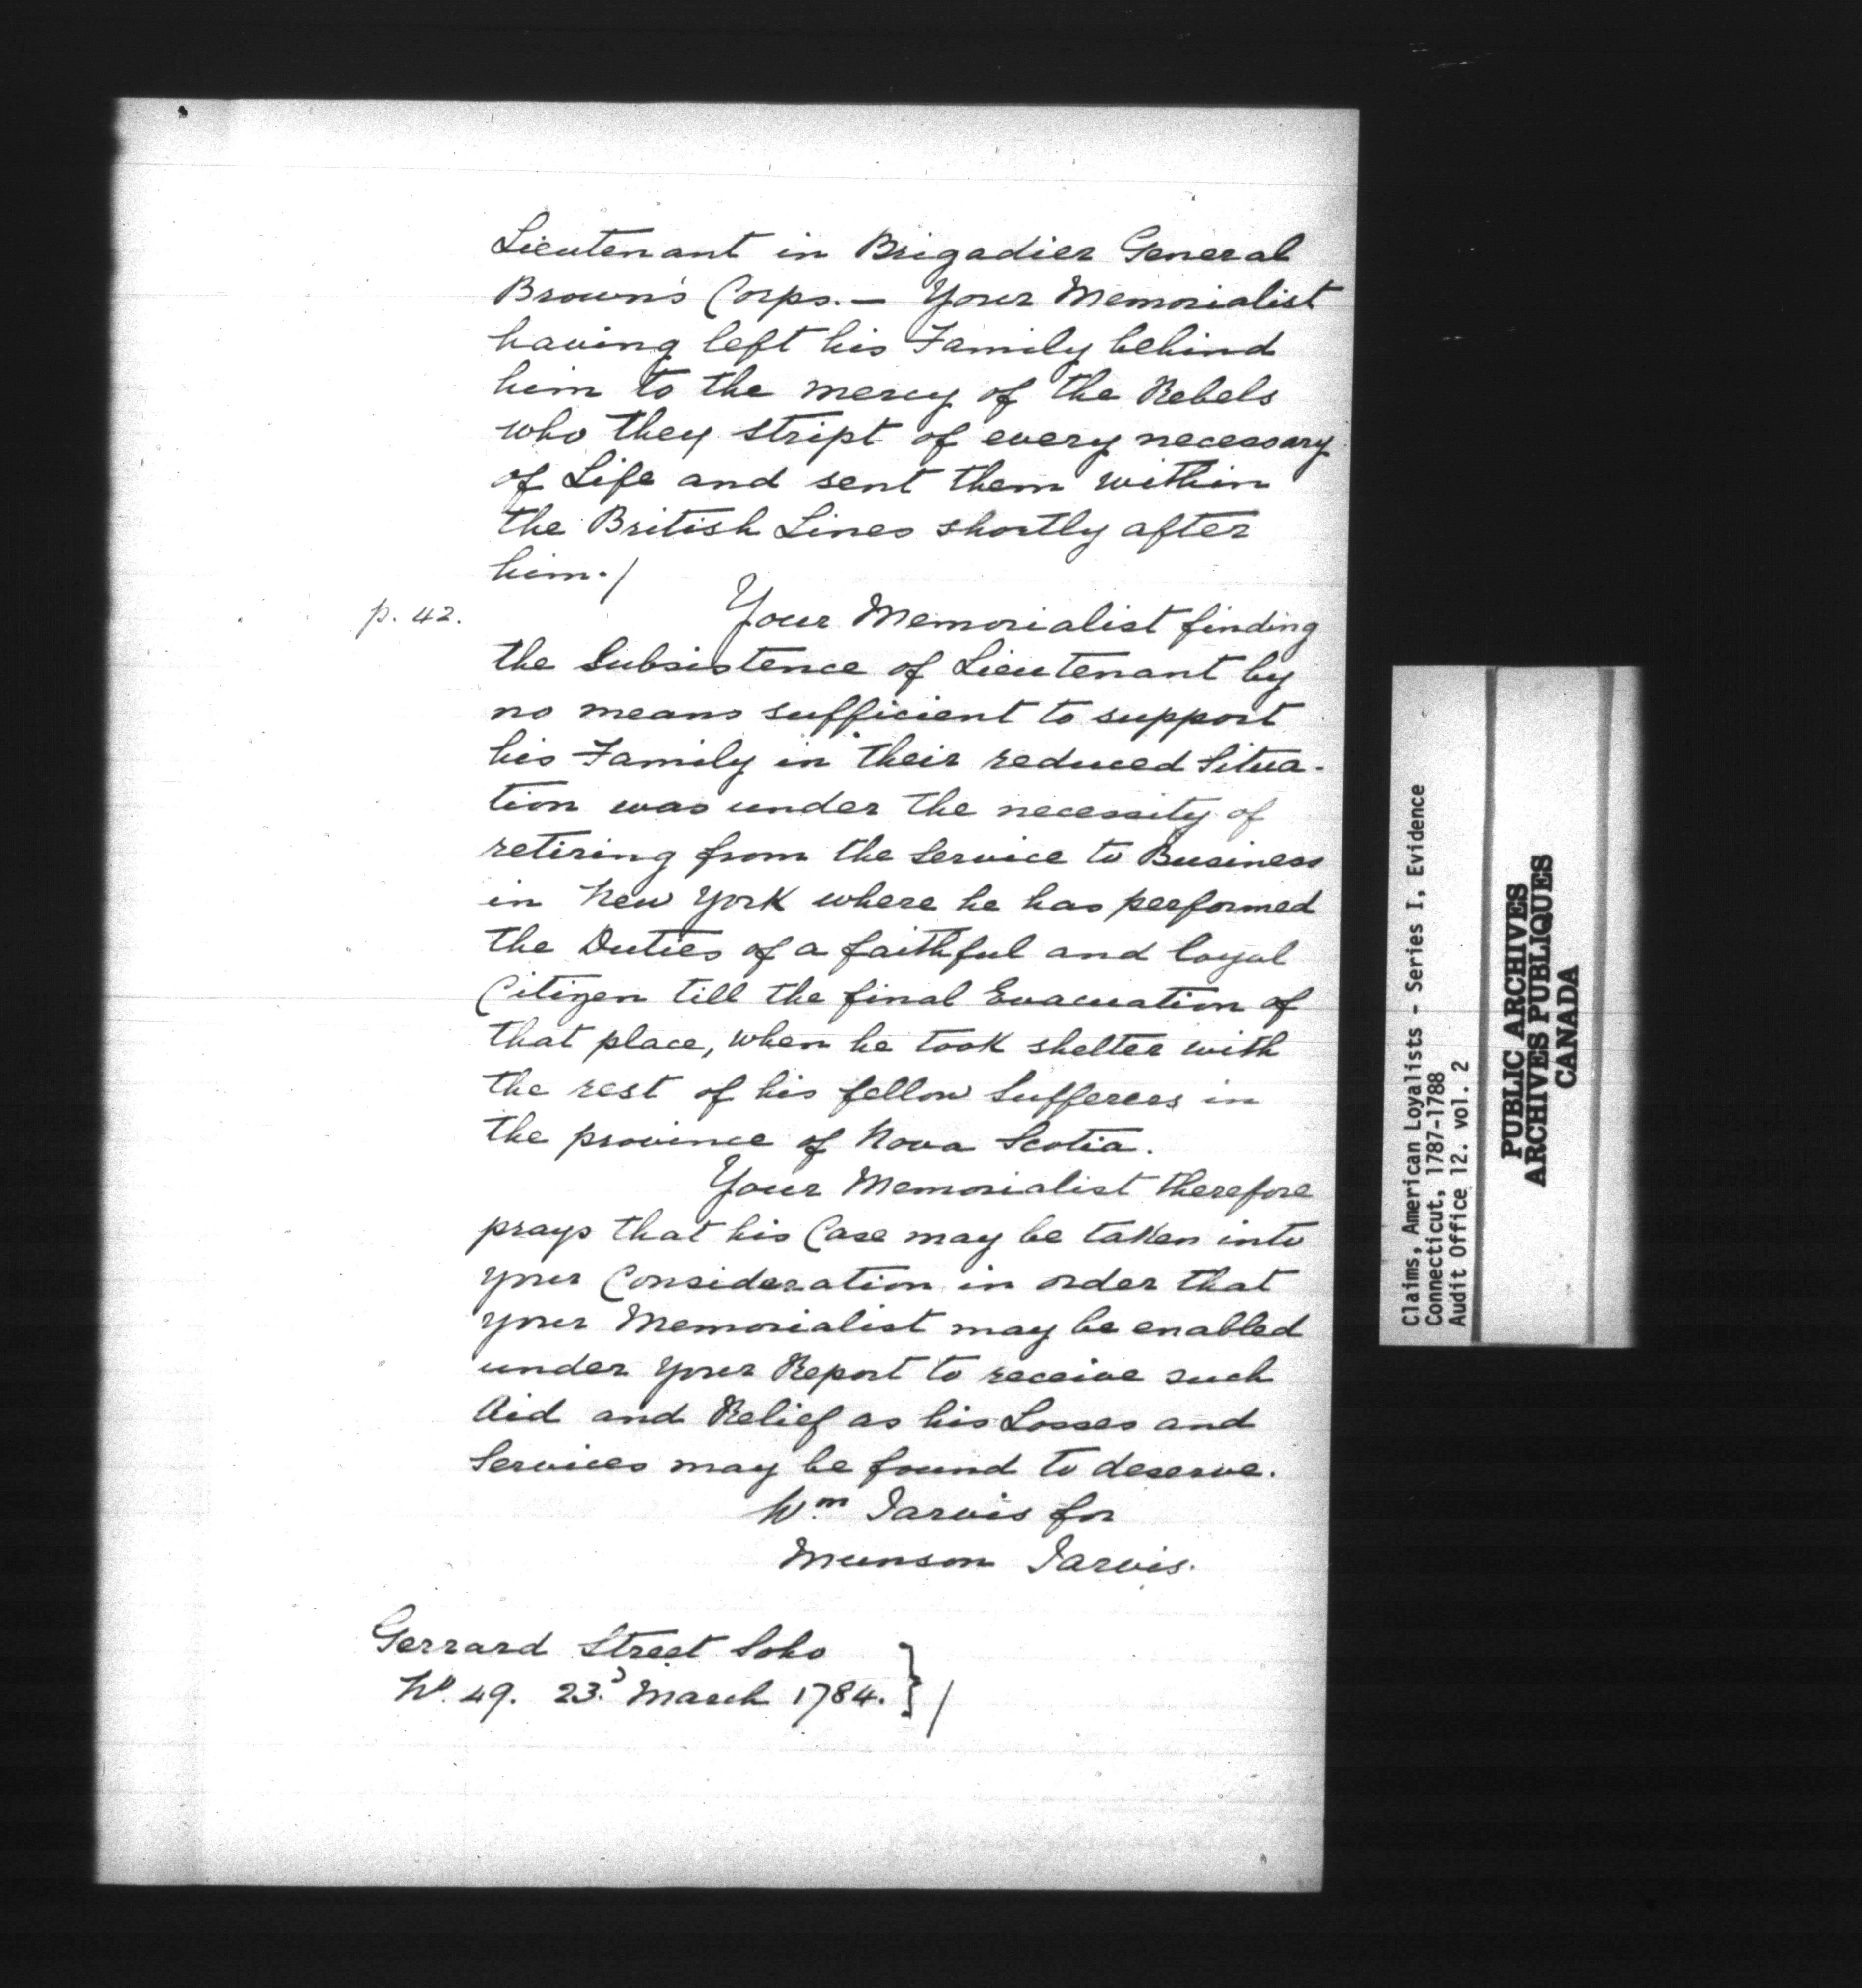 Lieutenant in Brigadier General
Brown's Corps.— Your Memorialist
having left his Family behind
him to the mercy of the Rebels
who they stript of every necessary
of Life and sent them within
the British Lines shortly after
him./
p. 42.
Your Memorialist finding
the Subsistence of Lieutenant by
no means sufficient to support
his Family in their reduced Situa-
tion was under the necessity of
retiring from the Service to Business
in New York where he has performed
the Duties of a faithful and loyal
Citizen till the final Evacuation of
that place, when he took shelter with
the rest of his fellow Sufferers in
the province of Nova Scotia.
Your Memorialist therefore
prays that his Case may be taken into
your Consideration in order that
your Memorialist may be enabled
under your Report to receive such
Aid and Relief as his Losses and
Services may be found to deserve.
Wm Jarvis for
Munson Jarvis.
Gerrard Street Soho
No. 49. 23d March 1784. } /
Claims, American Loyalists - Series I, Evidence
Connecticut, 1787-1788
Audit Office 12. vol. 2
PUBLIC ARCHIVES
ARCHIVES PUBLIQUES
CANADA